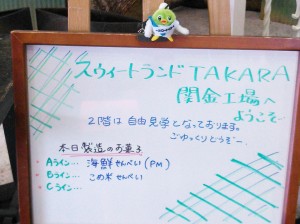 スウィートランドTAKARA
関金工場へ
ようこそ
2階は自由見学となっております。
ごゆっくりどうぞー
本日製造のお菓子
Aライン… 海鮮せんべい(PM)
Bライン… こめ米せんべい
Cライン…